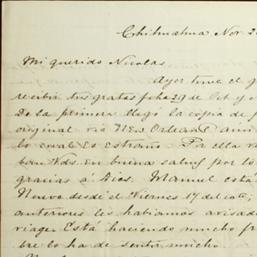 Chihuahua Nov. 2
Mi querido Nicolas
Ayer tuve el g
recibir tus gratas fcha 29 de Oct. y
De la primera llegó la copia de
original vía New Orleans aun
lo cual es estraño. Por ella v
ban Uds. en buena salud por lo
gracias á Dios. Manuel está
Nuevo desde el Viernes 17 del
anteriores les habiamos avisado
viage. Está haciendo mucho fr
lo ha de sentir mucho